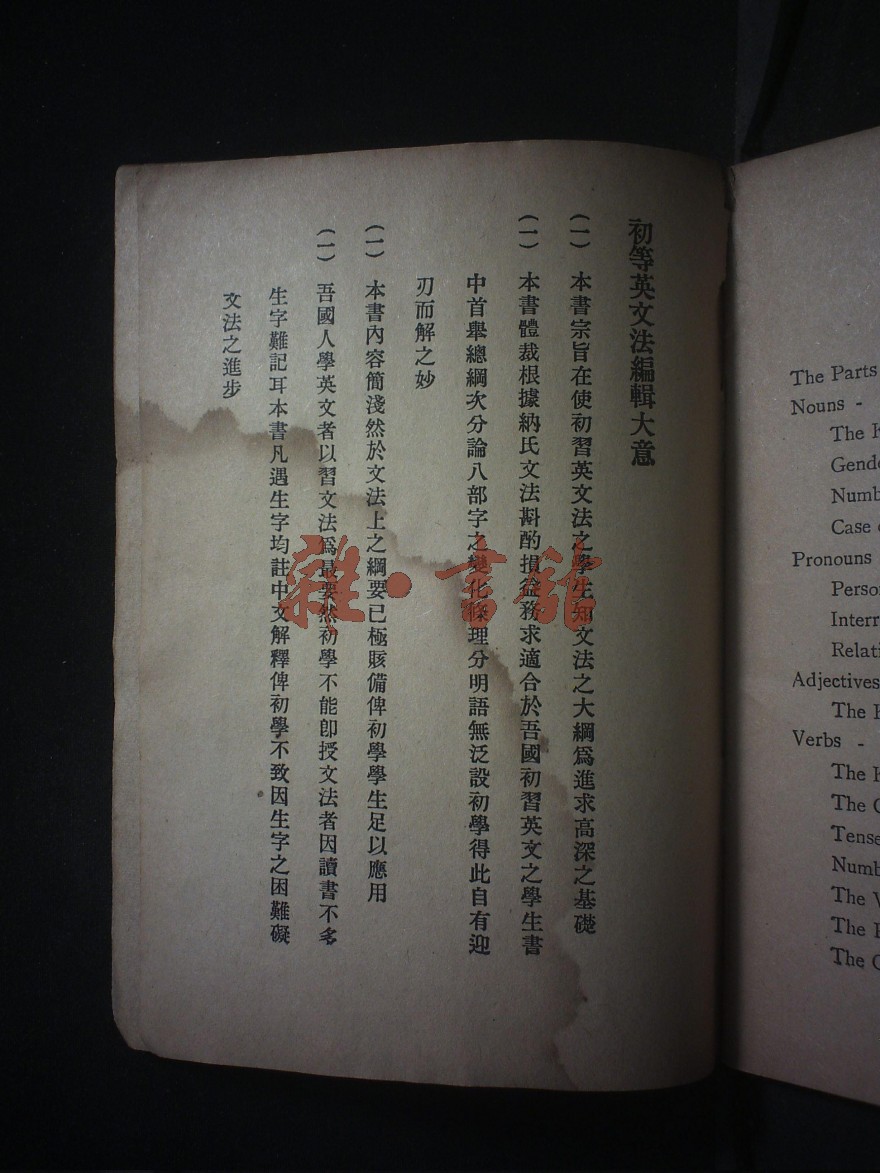 初等英文法編輯大意
(一) 本書宗旨在使初習英文法之學生知文法之大綱爲進求高深之基礎
(一) 本書體裁根據納氏文法斟酌損益務求適合於吾國初習英文之學生書
中首舉總綱次分論八部字之變化條理分明語無泛設初學得此自有迎
刃而解之妙
(一) 本書內容簡淺然於文法上之綱要已極賅備俾初學學生足以應用
(一) 吾國人學英文者以習文法爲最要然初學不能卽授文法者因讀書不多
生字難記耳本書凡遇生字均註中文解釋俾初學不致因生字之困難礙
文法之進步
雜·書舘
The Parts
Nouns -
The
Gende
Numb
Case
Pronouns
Person
Interr
Relati
Adjectives
The
Verbs -
The
The
Tense
Numb
The
The
The